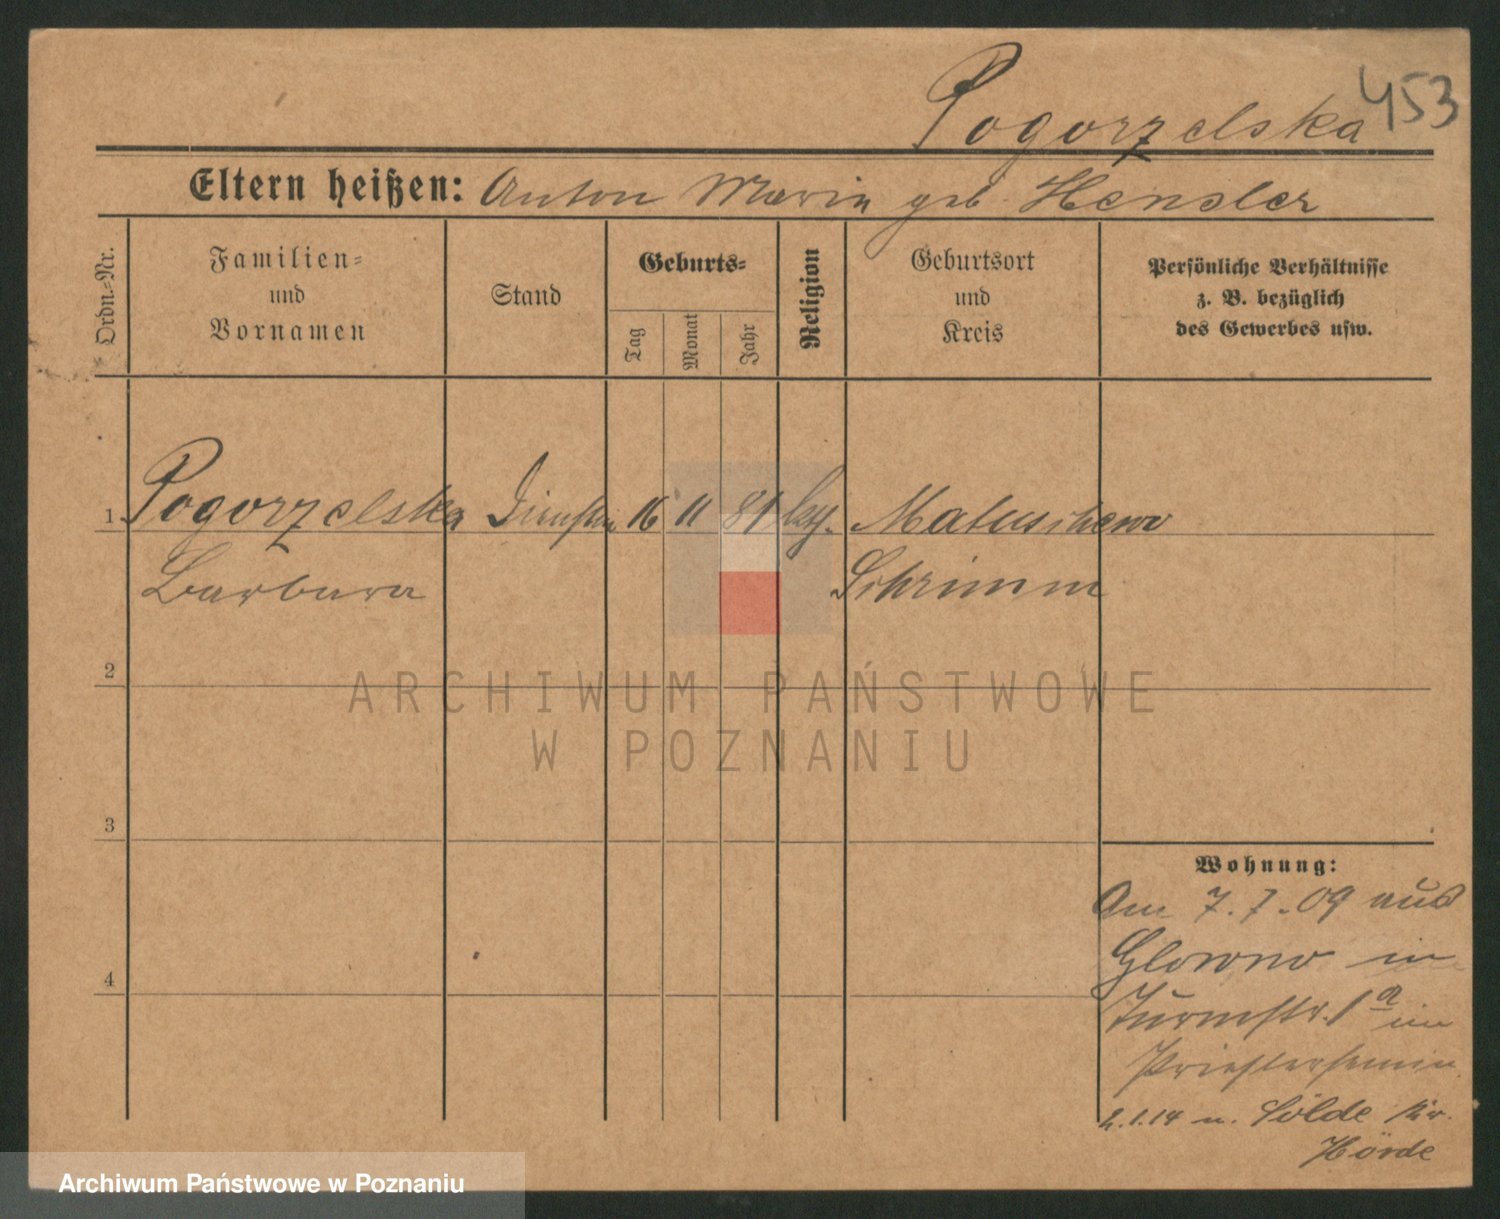 Pogorzelska
453
Eltern heißen: Anton Maria geb Hensler
Ordn.=Nr.
Familien=
und
Vornamen
Stand
Geburts=
Tag
Monat
Jahr
Religion
Geburtsort
und
Kreis
Persönliche Verhältnisse
z. B. bezüglich
des Gewerbes usw.
1 Pogorzelska 16 11 81 Matuschewo
Barbara Schrimm
2
ARCHIWUM PAŃSTWOWE
W POZNANIU
3
Wohnung:
Am 7.7.09 aus
4
Glowno in
Turmstr. 1 a im
Priestersemin.
2.1.14 n. Sölde Kr.
Hörde
Archiwum Państwowe w Poznaniu